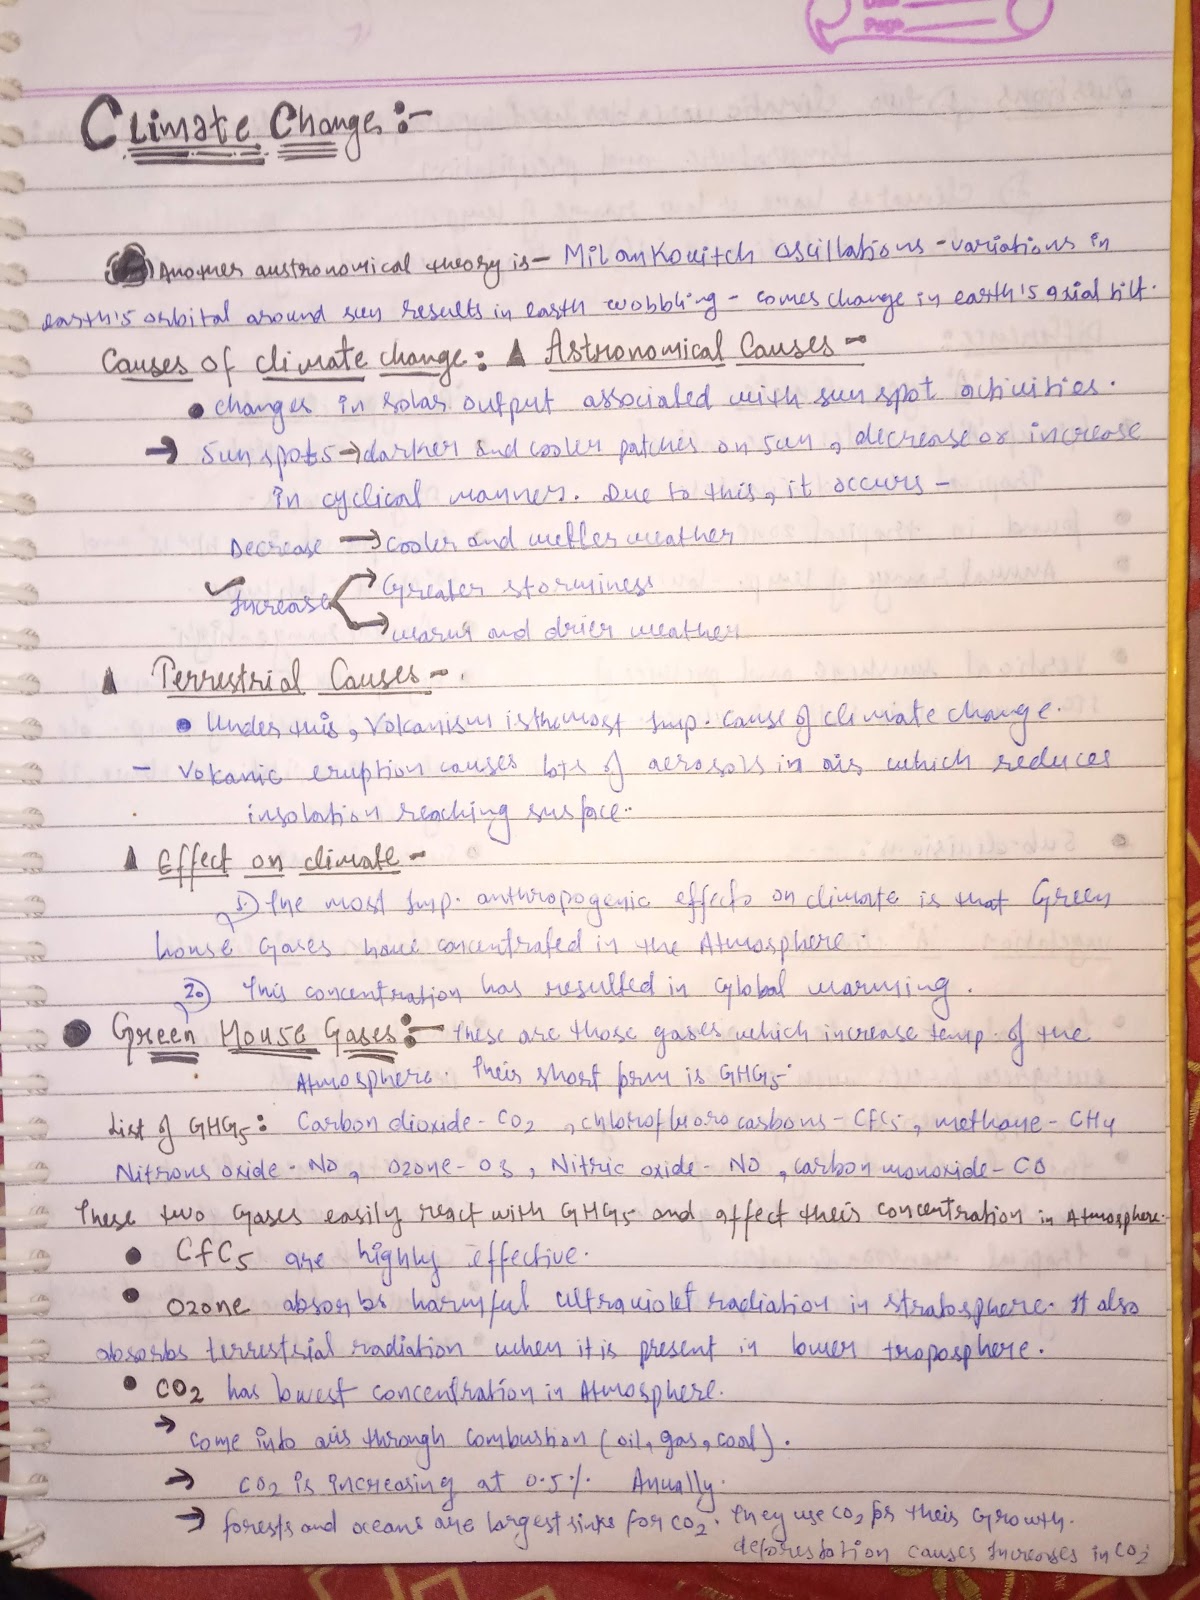 Page
Climate Change:-
Another austronomical theory is - Milankovitch oscillations - variations in
earth's orbital around sun results in earth wobbling - comes change in earth's axial tilt.
Causes of climate change: ▲ Astronomical Causes -
• changes in solar output associated with sun spot activities.
→ Sun spots → darker and cooler patches on sun, decrease or increase
in cyclical manner. Due to this, it occurs -
Decrease → cooler and wetter weather
Increase → Greater storminess
→ warm and drier weather
▲ Terrestrial Causes -
• Under this, Volcanism is the most Imp. cause of climate change.
- Volcanic eruption causes lots of aerosols in air which reduces
insolation reaching surface.
▲ Effect on climate -
1.) The most Imp. anthropogenic effects on climate is that Green
house Gases have concentrated in the Atmosphere.
2.) This concentration has resulted in Global warming.
• Green House Gases:- These are those gases which increase temp. of the
Atmosphere. Their short form is GHGs.
List of GHGs: Carbon dioxide - CO2, chlorofluorocarbons - CFCs, methane - CH4
Nitrous oxide - NO, Ozone - O3, Nitric oxide - NO, carbon monoxide - CO
These two Gases easily react with GHGs and affect their concentration in Atmosphere.
• CFCs are highly effective.
• Ozone absorbs harmful ultraviolet radiation in stratosphere. It also
absorbs terrestrial radiation when it is present in lower troposphere.
• CO2 has lowest concentration in Atmosphere.
→ come into air through combustion (oil, gas, coal).
→ CO2 is increasing at 0.5% Anually.
→ forests and oceans are largest sinks for CO2. They use CO2 for their Growth.
deforestation causes Increases in CO2